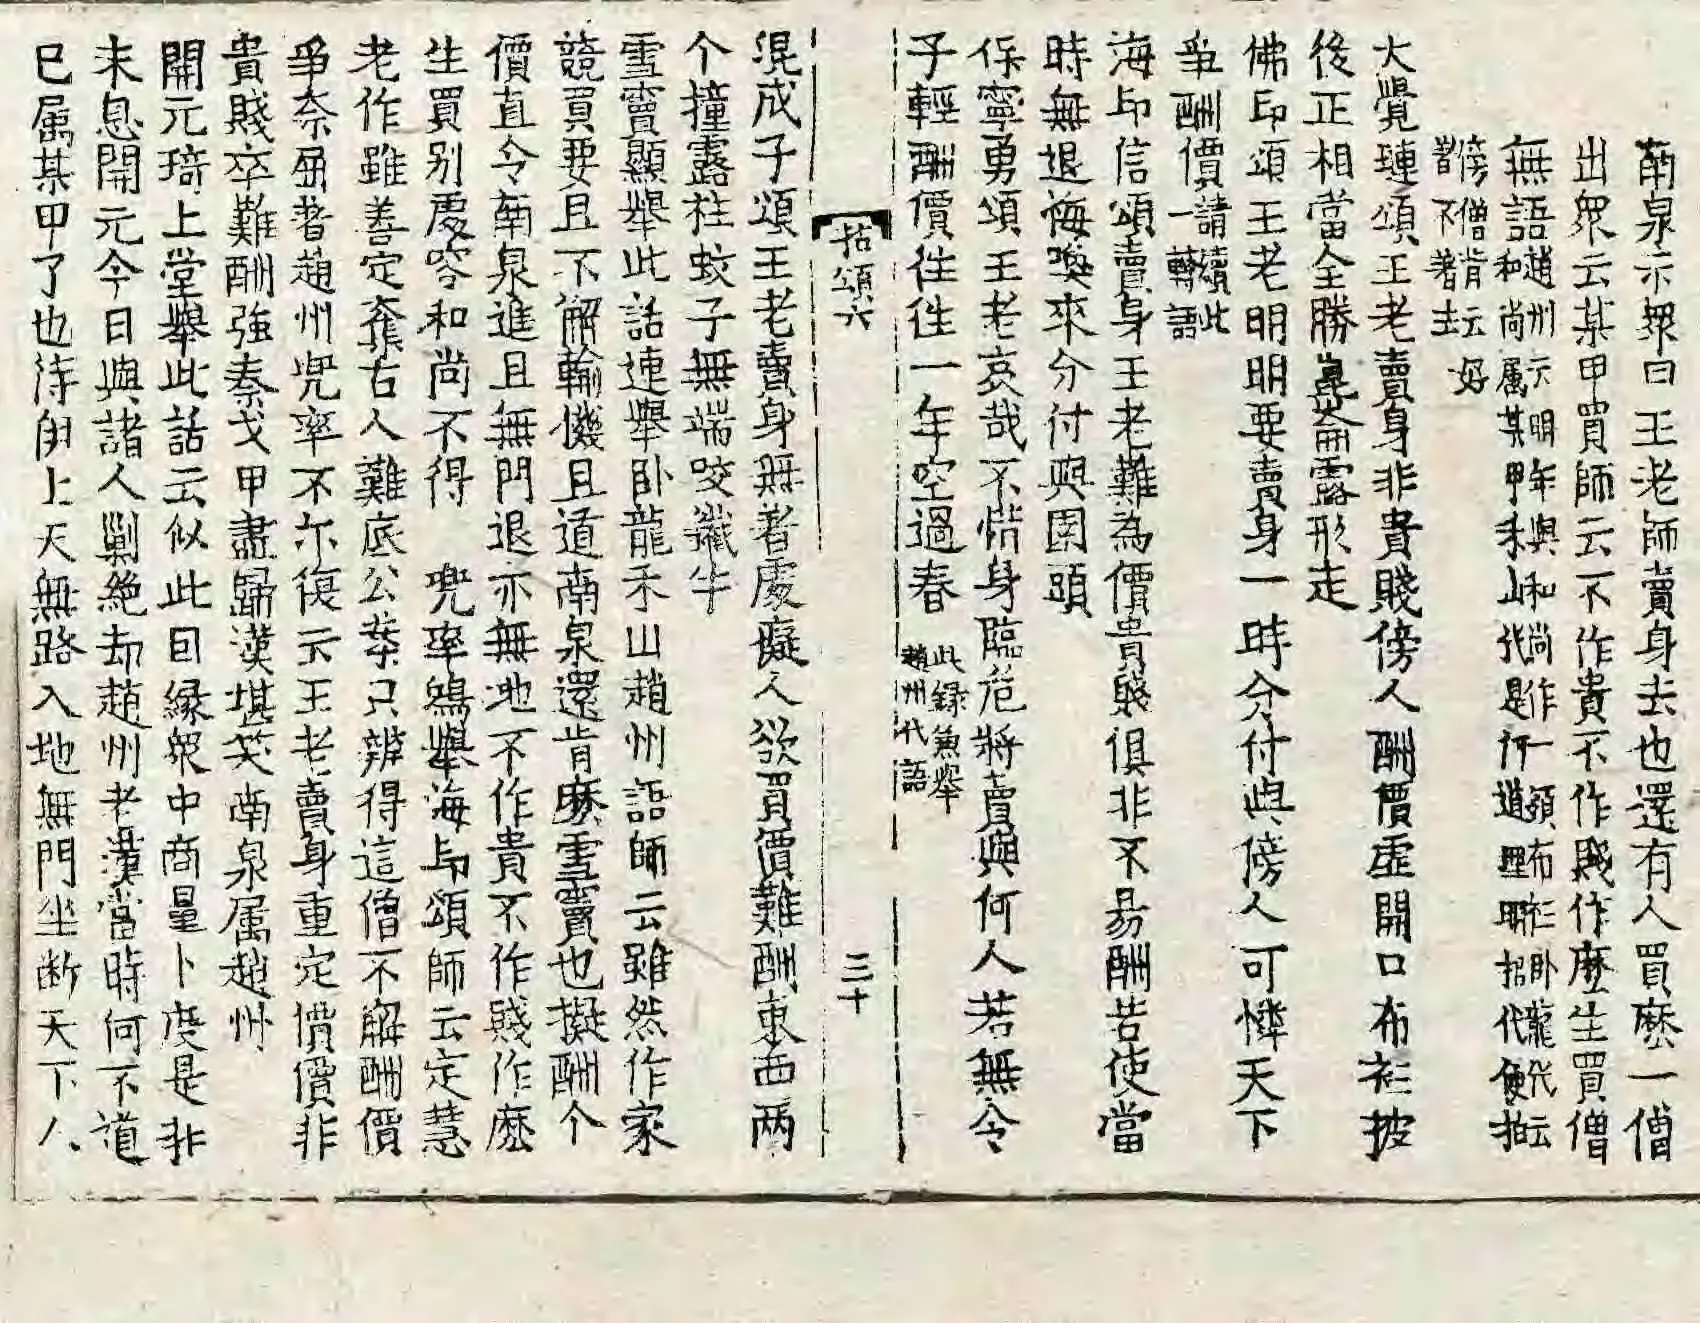 南泉示衆曰王老師賣身去也還有人買麽一僧
出衆云某甲買師云不作貴不作賤作麽生買僧
無語趙州云明年與和尚作一領布衫卧龍代云
和尚属某甲禾山代是何道理明招代便拍
傍僧背云好
不著主
大覺璉頌王老賣身非貴賤傍人酬價虚開口布衫披
後正相當全勝崑崙露形走
佛印頌王老明明要賣身一時分付與傍人可憐天下
争酬價請續此
一轉語
海印信頌賣身王老難為價貴賤俱非不易酬若使當
時無退悔喚來分付與園頭
保寧勇頌王老哀哉不惜身臨危將賣與何人若無令
子輕酬價往往一年空過春此録兼舉
趙州代語
拈頌六
三十
混成子頌王老賣身無著處癡人欲買價難酬東西兩
个撞露柱蚊子無端咬鐵牛
雪竇顯舉此話連舉卧龍禾山趙州語師云雖然作家
競買要且不解輸機且道南泉還肯麽雪竇也擬酬个
價直令南泉進且無門退亦無地不作貴不作賤作麽
生買别處容和尚不得 兜率鵶舉海印頌師云定慧
老作雖善定奪古人難底公案只辨得這僧不解酬價
争奈屈着趙州兜率不尓復示王老賣身重定價價非
貴賤卒難酬強秦戈甲盡歸漢堪笑南泉属趙州
開元琦上堂舉此話云似此因縁衆中商量卜度是非
未息開元今日與諸人剿絶却趙州老漢當時何不道
已属某甲了也待伊上天無路入地無門坐断天下人